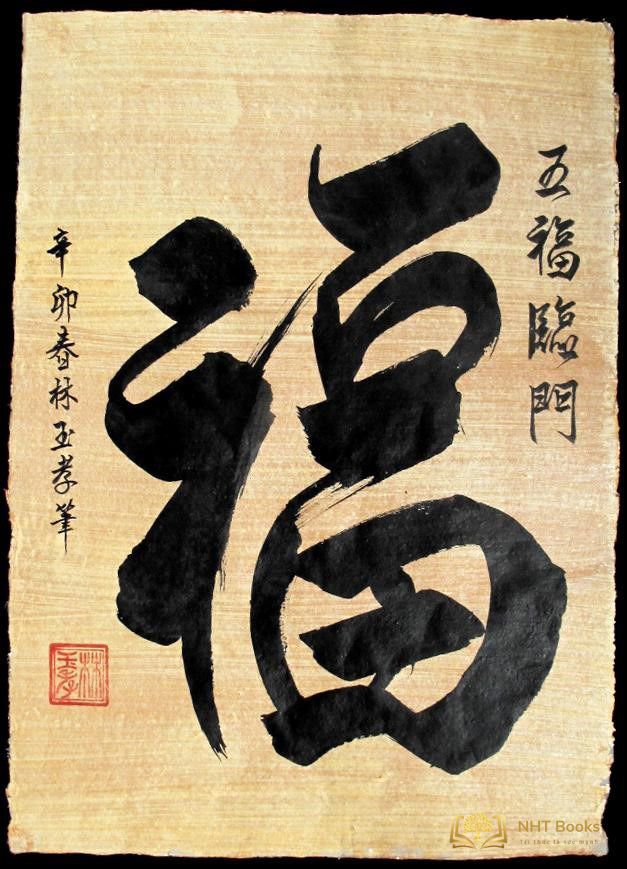 五福臨門
福
辛卯春林玉孝筆
林玉孝
NHT Books
Tri thức là sức mạnh